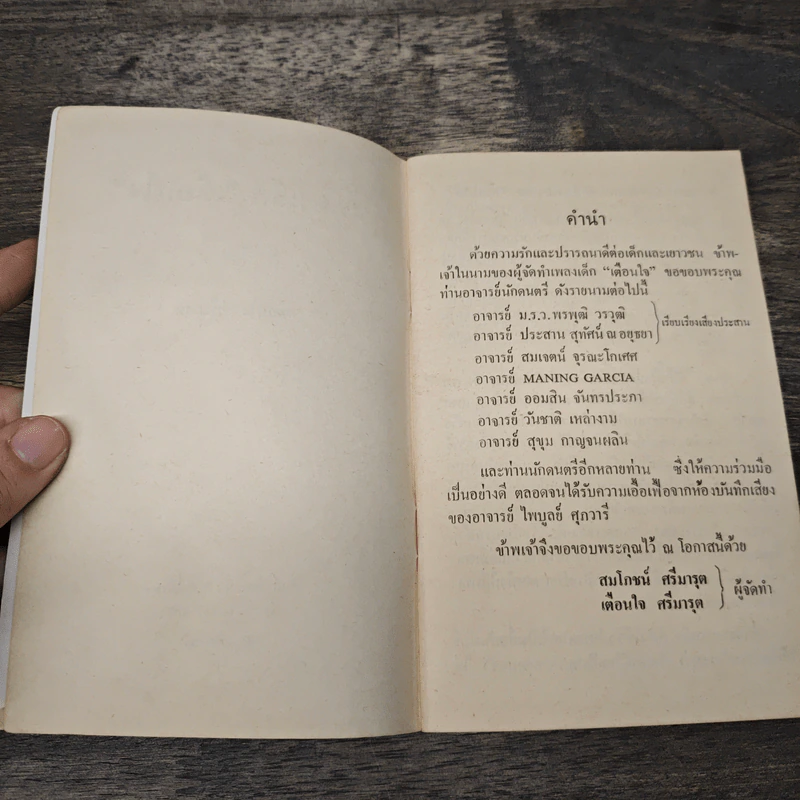 คำนำ
ด้วยความรักและปรารถนาดีต่อเด็กและเยาวชน ข้าพ-
เจ้าในนามของผู้จัดทำเพลงเด็ก “เตือนใจ” ขอขอบพระคุณ
ท่านอาจารย์นักดนตรี ดังรายนามต่อไปนี้
อาจารย์ ม.ร.ว.พรพุฒิ วรวุฒิ
อาจารย์ ประสาน สุทัศน์ ณ อยุธยา
เรียบเรียงเสียงประสาน
อาจารย์ สมเจตน์ จุรณะโกเศศ
อาจารย์ MANING GARCIA
อาจารย์ ออมสิน จันทรประภา
อาจารย์ วันชาติ เหล่างาม
อาจารย์ สุขุม กาญจนผลิน
และท่านนักดนตรีอีกหลายท่าน ซึ่งให้ความร่วมมือ
เป็นอย่างดี ตลอดจนได้รับความเอื้อเฟื้อจากห้องบันทึกเสียง
ของอาจารย์ ไพบูลย์ ศุภวารี
ข้าพเจ้าจึงขอขอบพระคุณไว้ ณ โอกาสนี้ด้วย
สมโภชน์ ศรีมารุต
เตือนใจ ศรีมารุต
ผู้จัดทำ